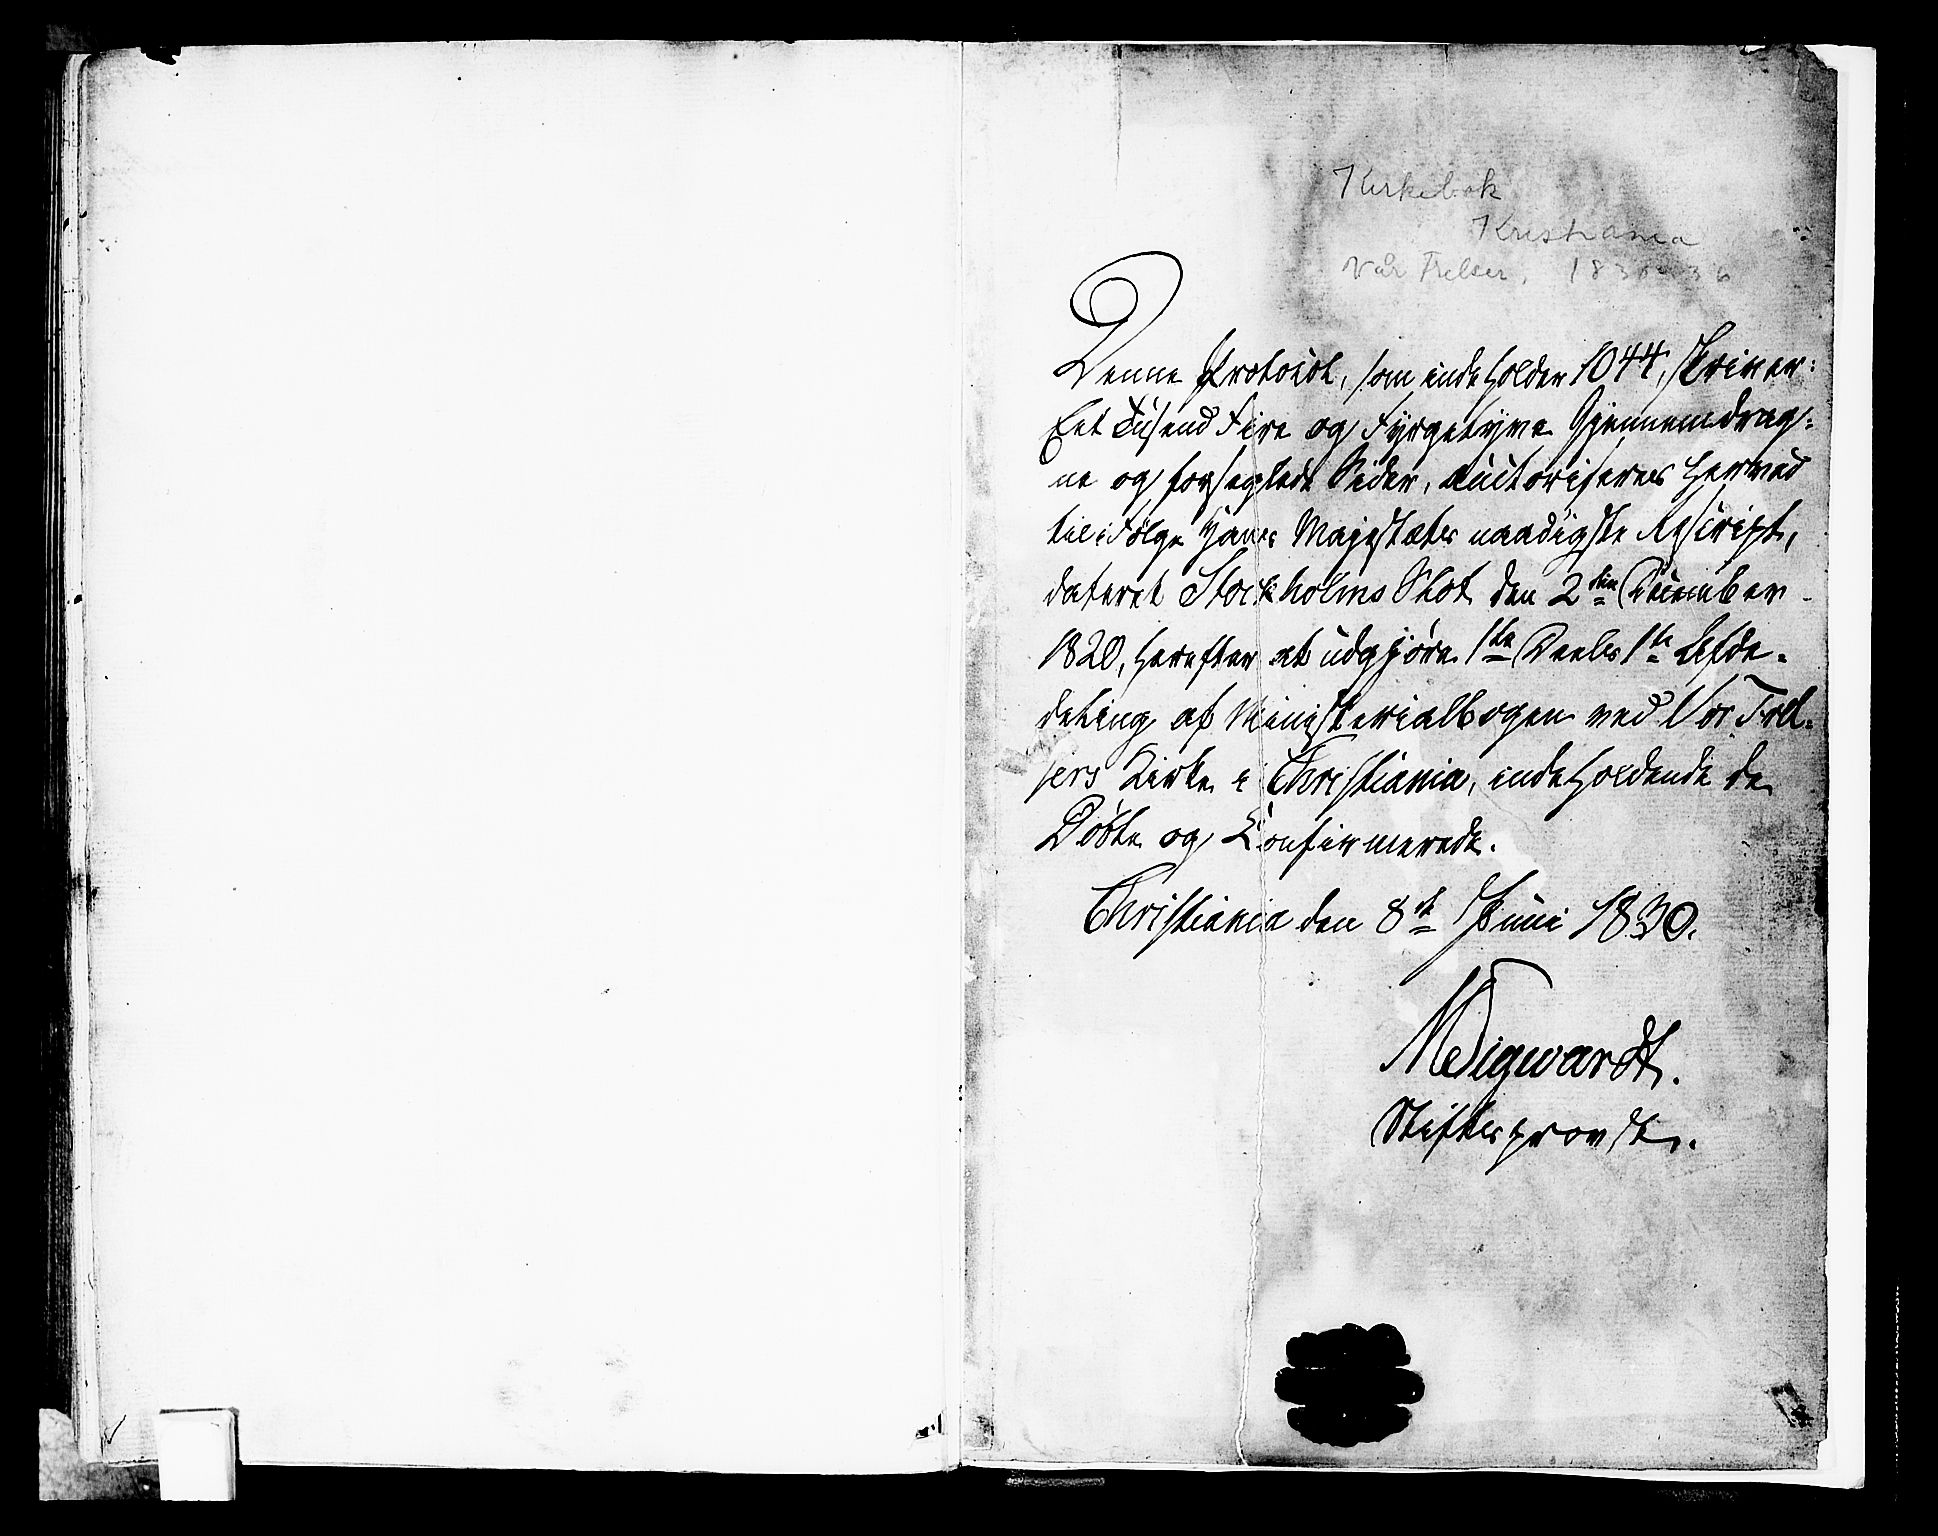 Kirkebok
Kristiania
Vår Frelser, 1830-36
Denne Protocol, som indeholder 1044, skriver:
Eet Tusend Fire og Fyrgetyve Gjennemdrag:
ne og forseglede Sider, auctoriseres herved
til ifølge Hans Majestæts naadigste Rescript,
dateret Stockholms Slot den 2den December
1820, herefter at udgjøre 1te Deels 1te Afde-
deling af Ministerialbogen ved Vor Frel-
sers Kirke i Christiania, indeholdende de
Døbte og Confirmerede.
Christiania den 8de Juni 1830.
MSigwardt.
Stiftsprovst.